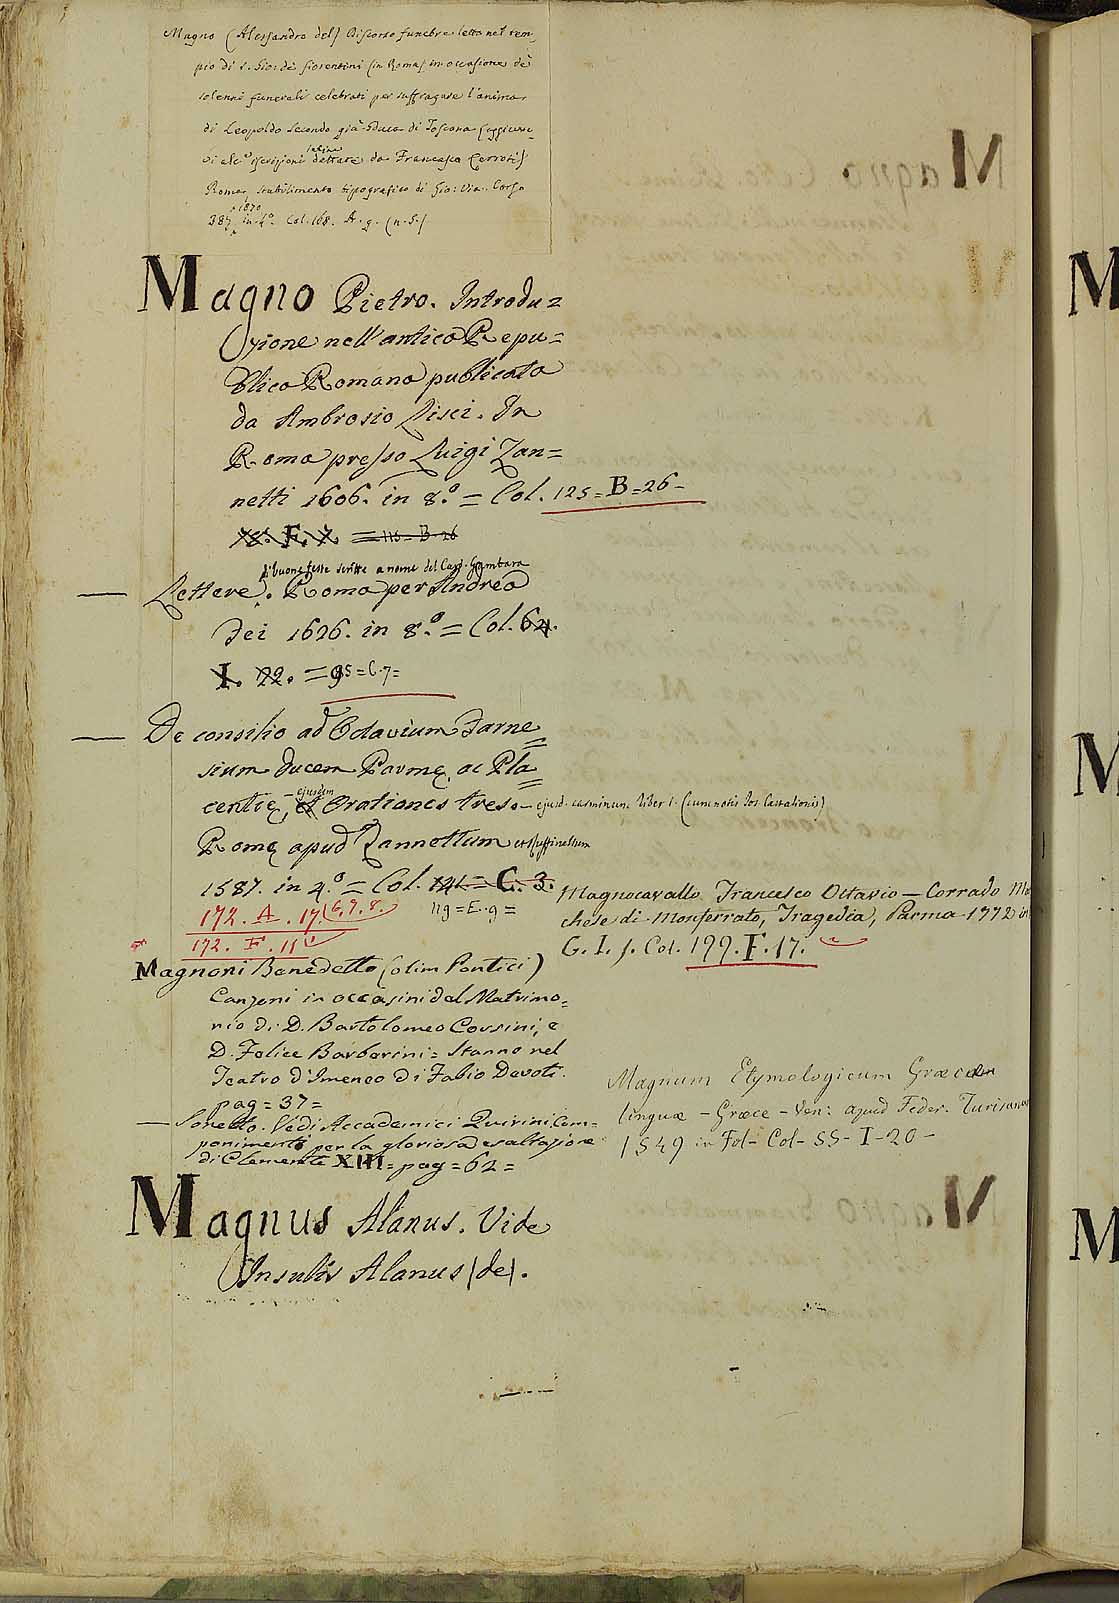 Magno (Alessandro del) Discorso funebre letto nel tem-
pio di S. Gio: de' fiorentini (in Roma) in occasione de'
solenni funerali celebrati per suffragare l'anima
di Leopoldo Secondo già Gduca di Toscana (aggiunte-
vi alc.e iscrizioni latine dettate da Francesco Cerroti)
Roma, stabilimento tipografico di Gio: Via. Corso
387 1870 in 4.º Col. 168. A. g. (n. 5.)
Magno Pietro. Introdu=
zione nell'antica Repu=
blica Romana publicata
da Ambrosio Lisci. In
Roma presso Luigi Zan=
netti 1606. in 8.º = Col. 125=B=26-
78. F. 7. = 115=B-26
di buone feste scritte a nome del Card. Gambara
— Lettere. Roma per Andrea
Fei 1626. in 8.º = Col. 64.
I. 72. = 95=C.7=
— De consilio ad Octavium Farne=
sium Ducem Parmę, ac Pla=
centię, et ejusdem Orationes tres - ejusd. carminum liber 1. (cum notis Jos. Castalionis)
Romę apud Zannettum et Ruffinellum
1587. in 4.º = Col. 141=C. 3.
172. A. 17. (6, 7, 8.) 119=E.9=
172. F. 11
Magnoni Benedetto (olim Pontici)
Canzoni in occasini del Matrimo=
nio di D. Bartolomeo Corsini, e
D. Felice Barberini = Stanno nel
Teatro d'Imeneo di Fabio Devoti.
pag = 37 =
— Sonetto. Vedi Accademici Quirini Com=
ponimenti per la gloriosa esaltazione
di Clemente XIII = pag = 62 =
Magnus Alanus. Vide
Insulis Alanus (de).
Magnocavallo Francesco Ottavio — Corrado Ma
chese di Monferrato, Tragedia, Parma 1772 in
G. I. f. Col. 199. F. 17.
Magnum Etymologicum Græcæ
linguæ - Græce - Ven: apud Feder. Turisanum
1549 in Fol- Col- SS- I-20-